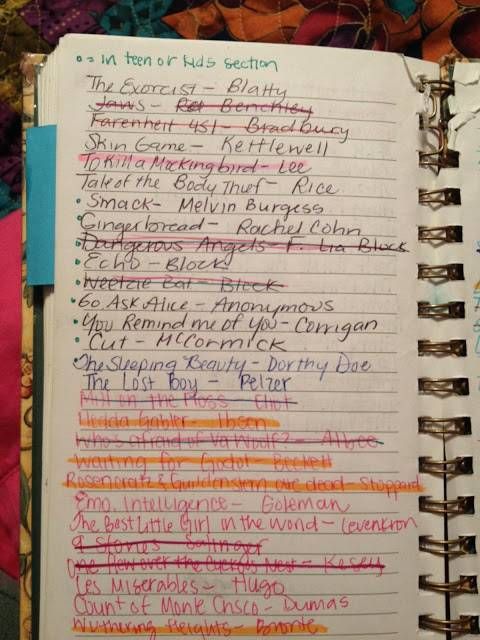 •= in teen or kids section
The Exorcist - Blatty
Jaws - Benchley
Farenheit 451 - Bradbury
Skin Game - Kettlewell
To Kill a Mockingbird - Lee
Tale of the Body Thief - Rice
• Smack - Melvin Burgess
• Gingerbread - Rachel Cohn
• Dangerous Angels - F. Lia Block
• Echo - Block
• Weetzie Bat - Block
• Go Ask Alice - Anonymous
• You Remind me of You - Corrigan
• Cut - McCormick
• The Sleeping Beauty - Dorthy Doe
The Lost Boy - Pelzer
Mill on the Floss - Eliot
Hedda Gabler - Ibsen
Who's afraid of Va Woolf? - Albee
Waiting for Godot - Beckett
Rosencratz & Guildenstern are dead - Stoppard
Emo. Intelligence - Goleman
The Best Little Girl in the World - Levenkron
9 Stories - Salinger
One Flew over the Cuckoo's Nest - Kesey
Les Miserables - Hugo
Count of Monte Chsco - Dumas
Wuthering Heights - Bronte